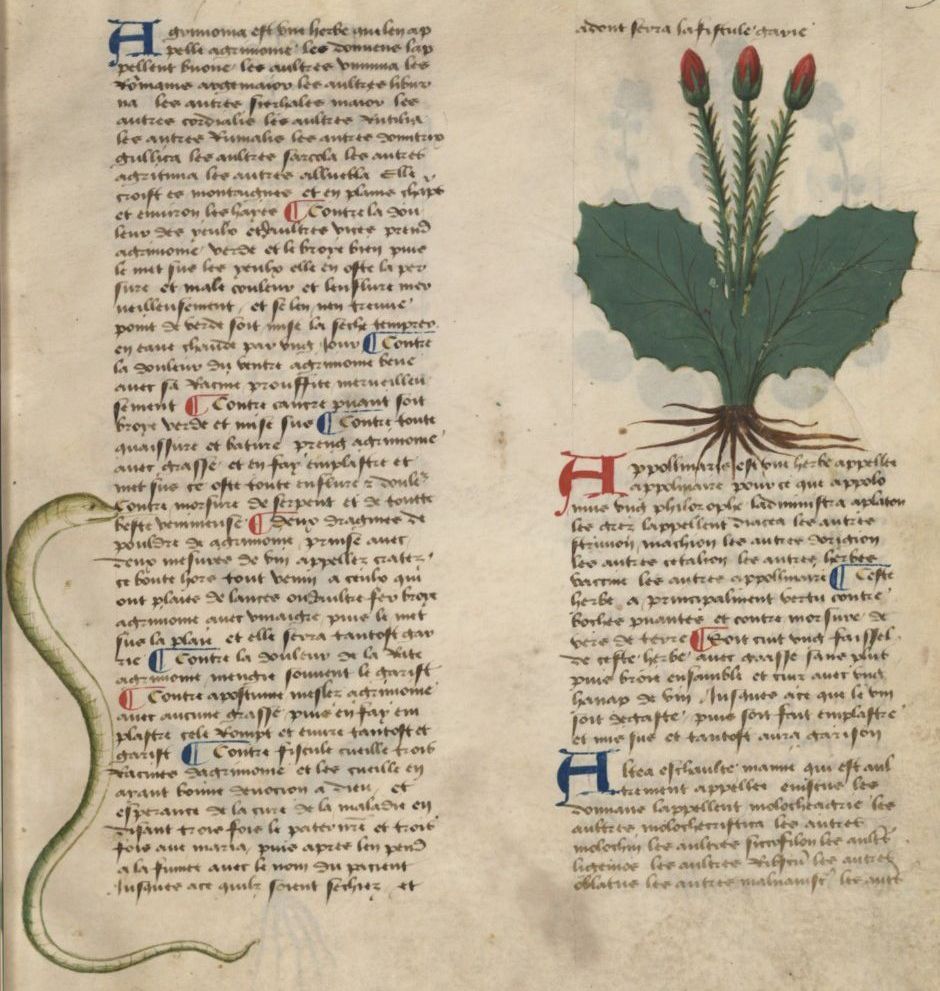 Agrimonia est une herbe que len ap
pelle agrimoine les domiens lap
pellent buone les aultres ununia les
Rommains argemaior les aultres libur
na les autres sierhales maior les
autres cordialis les aultres Rutilia
les autres Rumalis les autres domitrix
gullica les aultres sarcola les autres
agritima les autres alluebla Elle
croist es montaignes et en plains chaps
et environ les hayes ¶ Contre la dou
leur des yeulx et daultres vices prend
agrimoine verde et le broye bien puis
le met sus les yeulx elle en oste la per
sure et male couleur et lenflure mer
veilleusement et se len nen treuve
point de verde soit mise la seche tempree
en eaue chaude par ung jour ¶ Contre
la douleur du ventre agrimoine beue
avec sa Racine prouffite merveilleu
sement ¶ Contre cancre puant soit
broye verde et mise sus ¶ Contre toute
quaissure et bature preng agrimoine
avec grasse et en fay emplastre et
met sus ce oste toute enflure z doule
Contre morsure de serpent et de toutte
beste venimeuse ¶ deux dragmes de
pouldre de agrimoine prinse avec
deux mesures de vin appellez crater
ce boute hors tout venin a ceulx qui
ont plaies de lances ou daultre fer broye
agrimoine avec vinaigre puis le met
sus la plaie et elle sera tantost gar
rie ¶ Contre la douleur de la Rate
agrimoine mengie souvent le garist
¶ Contre apostume meslez agrimoine
avec aucune grasse puis en fay em
plastre cele Rompt et euvre tantost et
garist ¶ Contre fiscule cueille trois
Racines dagrimoine et les cueille en
ayant bonne devocion a dieu et
esperance de la cure de la maladie en
disant trois fois le paternre et trois
fois ave maria puis apres len pend
a la fumee avec le nom du pacient
Jusques ace quilz soient sechiez et
adont sera la fistule garie
Appollinaris est une herbe appellee
appolinaire pour ce que appolo
nius ung philosophe ladministra aplaton
les grez lappellent diacea les autres
strimon machion les autres dorigion
les autres cetalion les autres herbes
vaccine les autres appollinaire ¶ Ceste
herbe a principalment vertu contre
boches puantes et contre morsure de
vers de terre ¶ Soit cuit ung faissel
de ceste herbe avec grasse sans plus
puis broie ensamble et cuir avec ung
hanap de vin Jusques ace que le vin
soit degaste puis soit fait emplastre
et mis sus et tantost aura garison
Altea eschaulte mauve qui est aul
trement appellee eviscus les
domains lappellent molocheagrie les
aultres molochecristica les autres
molochin les aultres siccasilon les aultres
ligeinos les aultres Ribscu les autres
oblatus les autres malvavisc les autres